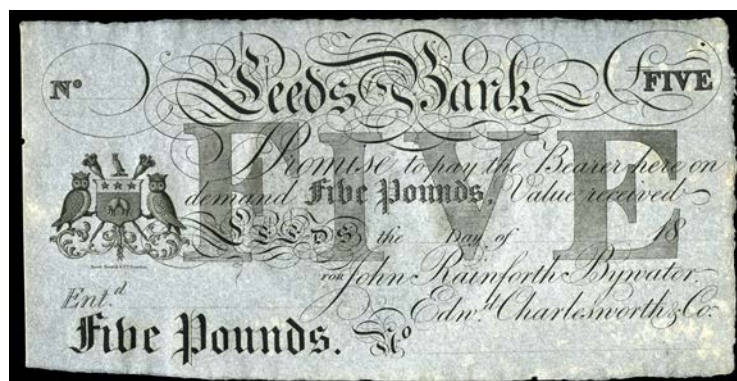 Nº Leeds Bank FIVE
FIVE
I Promise to pay the Bearer here on
demand Five Pounds, Value received
LEEDS the Day of 18
FOR John Rainforth Bywater.
Ent.d Edw.d Charlesworth & Co.
Five Pounds. Nº